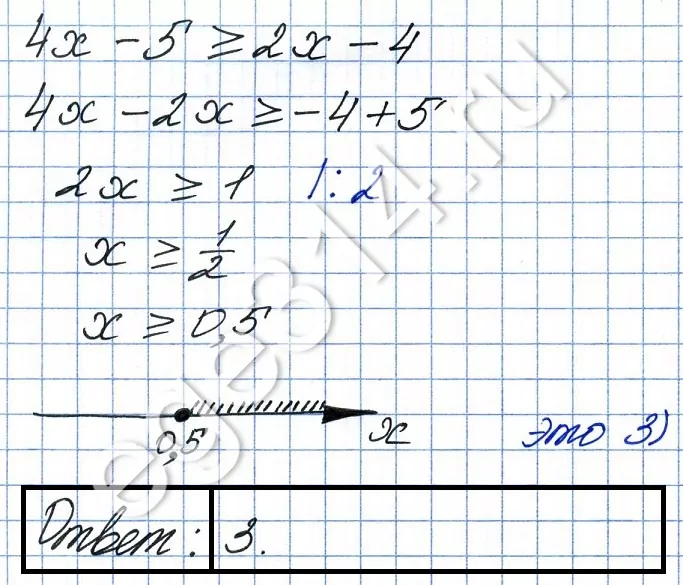 4x - 5 ≥ 2x - 4
4x - 2x ≥ -4 + 5
2x ≥ 1 |: 2
x ≥ 1/2
x ≥ 0,5
0,5 x это 3)
Ответ: 3.
ege314.ru